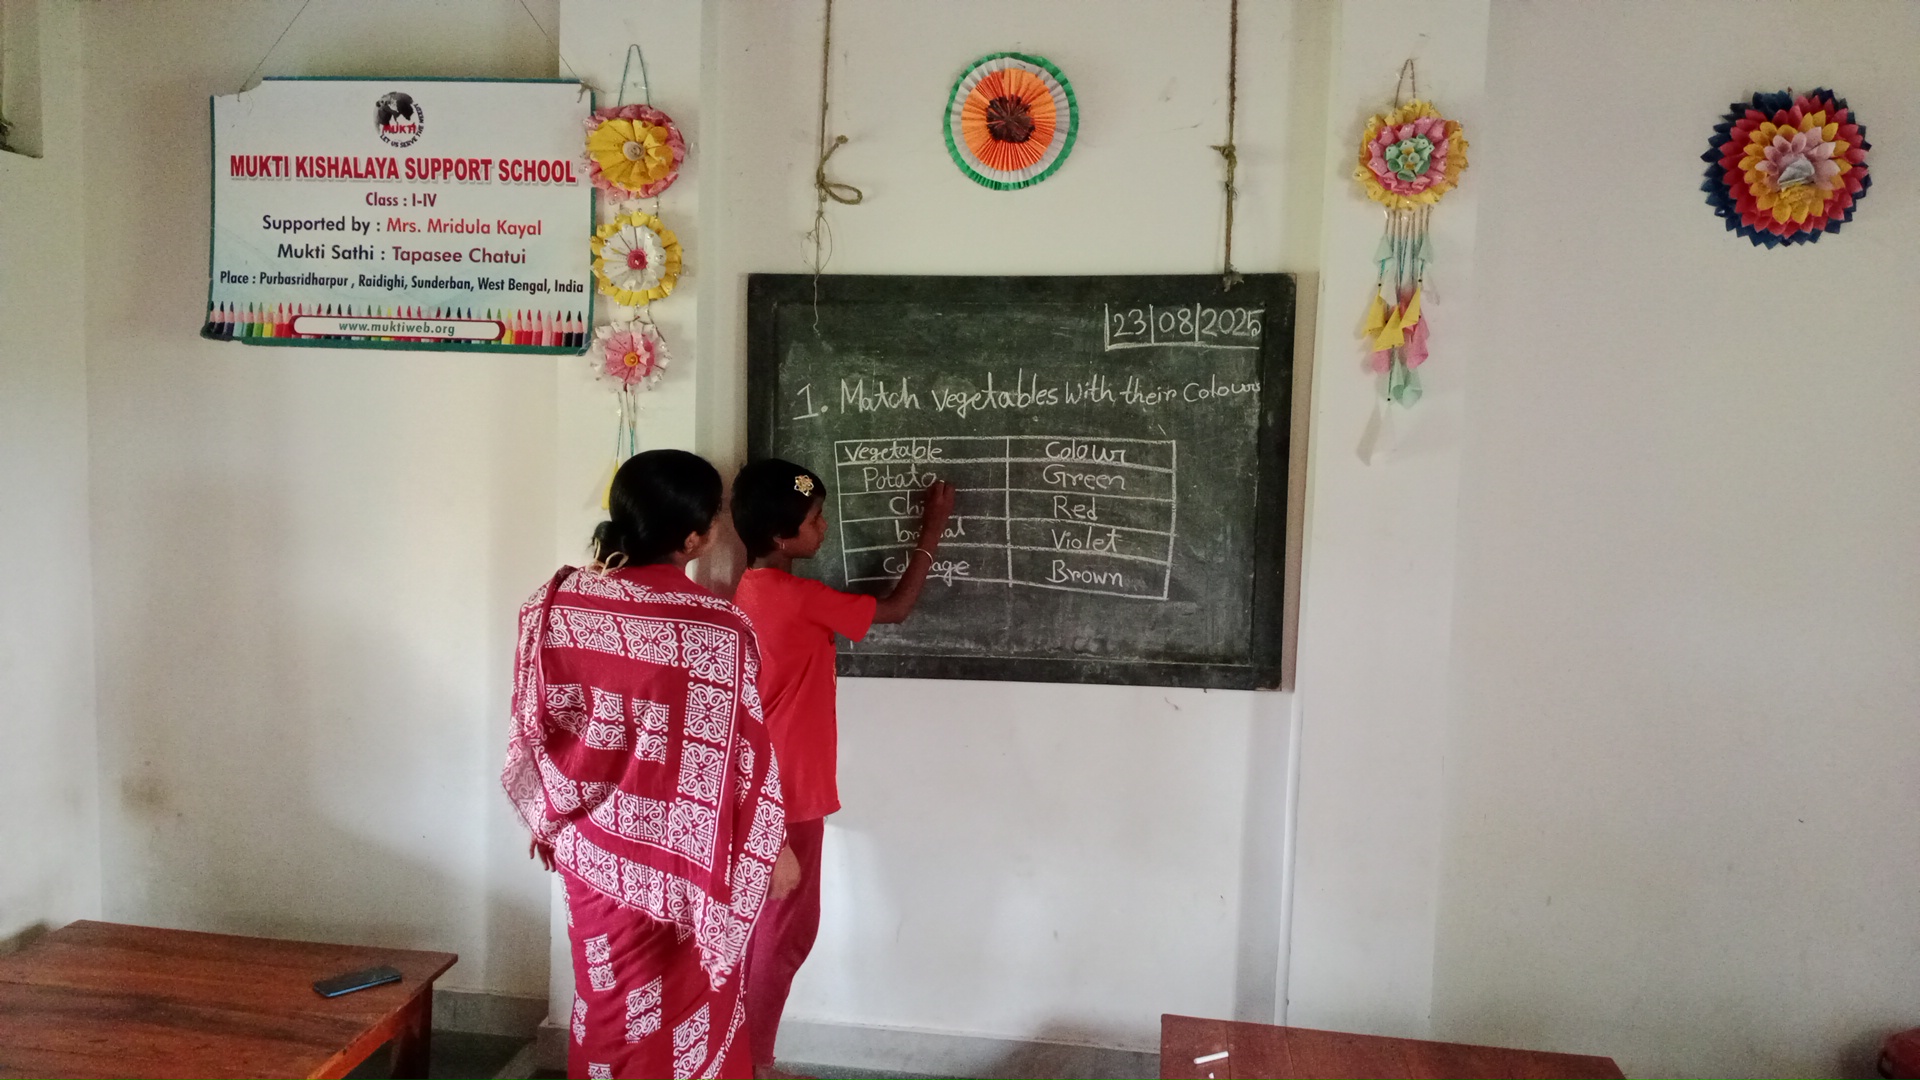 MUKTI
LET US SERVE THE NEEDY
MUKTI KISHALAYA SUPPORT SCHOOL
Class : I-IV
Supported by : Mrs. Mridula Kayal
Mukti Sathi : Tapasee Chatui
Place : Purbasridharpur , Raidighi, Sunderban, West Bengal, India
www.muktiweb.org
23|08|2025
1. Match vegetables with their Colours
Vegetable Colour
Potato Green
Red
Violet
Brown